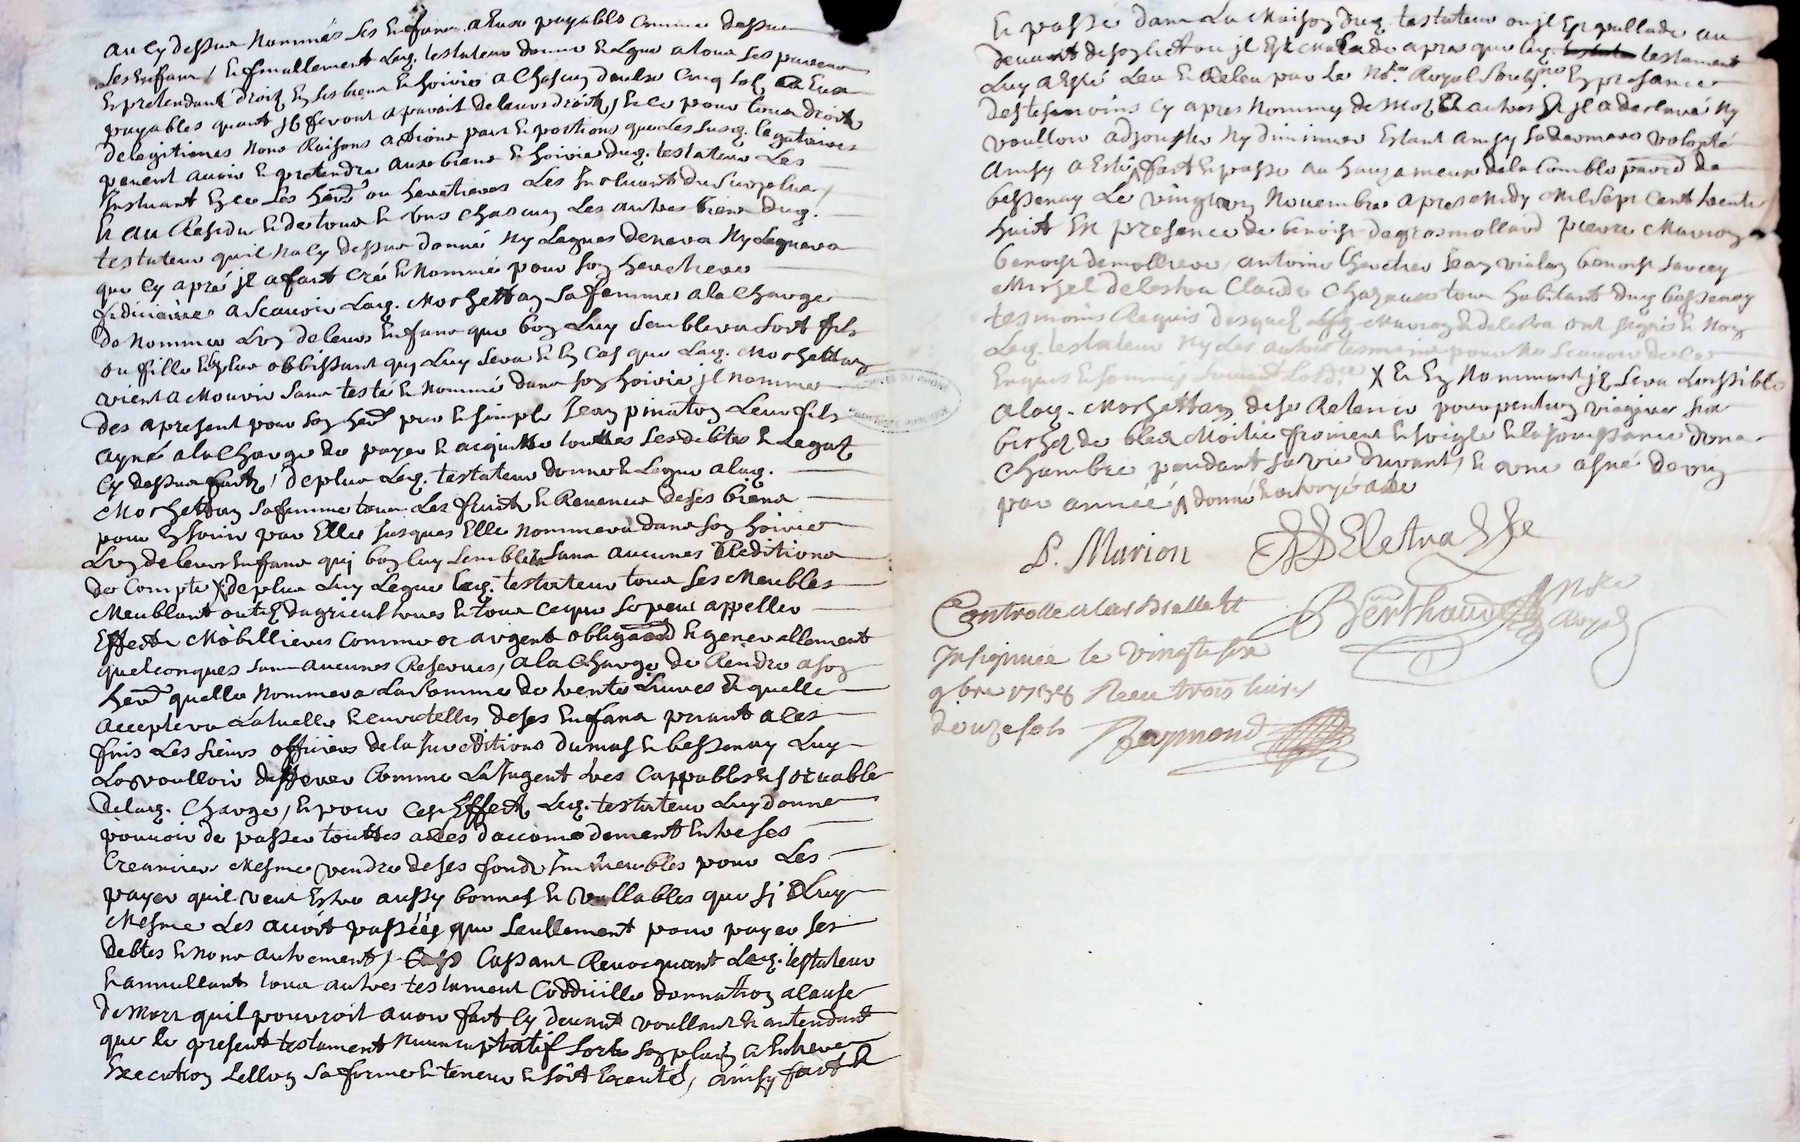 au cy dessus nommés ses enfans a eux payable comme dessus
ses enfans / et finallement led. testateur donne et legue a tous ses parens
et pretendant droit en ses biens et hoirie a chascun deulx cinq sols a eux
payables quant ils feront aparoit de leurs droits, et ce pour tous droits
de legitimes noms raisons actions part et portions que les susd. legataires
peuvent avoir et pretendre aux biens et hoirie dud. testateur les
instituant en ce ses herers ou heretieres les excluant du surplus /
et au residu et de tous et uns chascun les autres biens dud.
testateur quil na cy dessus donné ny legués denera ny leguera
que cy apré jl a fait créé et nommé pour son heretiere
fidiciaire a scavoir lad. Mochettan sa femme a la charge
de nommer lun de leurs enfans que bon luy semblera soit fils
ou fille le plus obbissant quy luy sera et en cas que lad. Mochettan
vient a mourir sans testé et nommé dans son hoirie jl nomme
des apresent pour son herer pur et simple Jean pinaton leur fils
ayné a la charge de payer et acquitter touttes ses debtes et legatz
cy dessus faits, de plus led. testateur donne et legue a lad.
Mochettan sa femme tous les fruits et revenus de ses biens
pour en jouir par elle jusques elle nommera dans son hoirie
lun de leurs enfans quj bon luy semblera sans aucunes reditions
de compte X de plus luy legue led. testateur tous ses meubles
meublant outiz dagricultures et tous ce que se peut appeller
effects mobilliers comme or argent obligaons et generallement
quelconques sans aucunes reserves, a la charge de rendre a son
herer quelle nommera la somme de trente livres et quelle
acceptera la tuelle et curatelle de ses enfans priant a ces
fins les sieurs officiers de la jurediction dumas et bessenay luy
le voulloir defferer comme la jugent tres cappables et soluable
de lad. charge, et pour cest effect led. testateur luy donne
pouvoir de passer touttes actes daccomodement entre ses
creanciers mesme vendre de ses fonds immeubles pour les
payer quil veut estre aussy bonnes et vallables que sj luy
mesme les avoit passées que seullement pour payer ses
debtes et nons autrement, cassant revocquant led. testateur
et annullant tous autres testament coddicille donnation a cause
de mort quil pourroit avoir fait cy devant voullant et entendant
que le present testament nuncupatif sorte son plain et entiere
execution sellon sa forme et teneur et soit executé, ainsy fait et
et passé dans la maison dud. testateur ou jl est mallade au
devant de son lict ou jl est malade apres que led. testament
luy a esté leu et releu par le nore royal soubsné en presance
des tesmoins cy apres nommes de mot et autres et jl a declaré ny
voulloir adjouster ny diminuer estant ainsy sa derniere volonté
ainsy a esté fait et passé au hameau de la combe parr de
bessenay le vingt un novembre apres midy mil sept cent trente
huict en presence de benoist degrosmollard pierre Marion
benoist demolliere, antoine cherchere jean vialon benoist sarcey
Michel delestra Claude chazaud tous habitant dud. bessenay
tesmoins requis desquels lesd. Marion et delestra ont signés et non
led. testateur ny les autres tesmoins pour ne scavoir de ce
enquis et sommés suivant lordce X et en nommant jl sera loissible
a lad. Mochettan de se retenir pour pention viagiere six
bichez de bled moitié froment et soigle et la jouissance dune
chambre pendant sa vie durant, et une asné de vin
par année, donné et octroyé acte
P. Marion Delestra
Berthaud Nore Royal
Controllé a larbrelle et
Insinué le vingt six
9bre 1738 Receu trois livres
douze sols Raymond
ARCHIVES DU RHONE